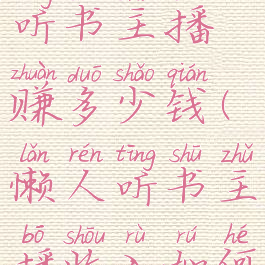 听书主播
zhuàn duō shǎo qián
赚多少钱(
lǎn rén tīng shū zhǔ
懒人听书主
bō shōu rù rú hé
播收入如何